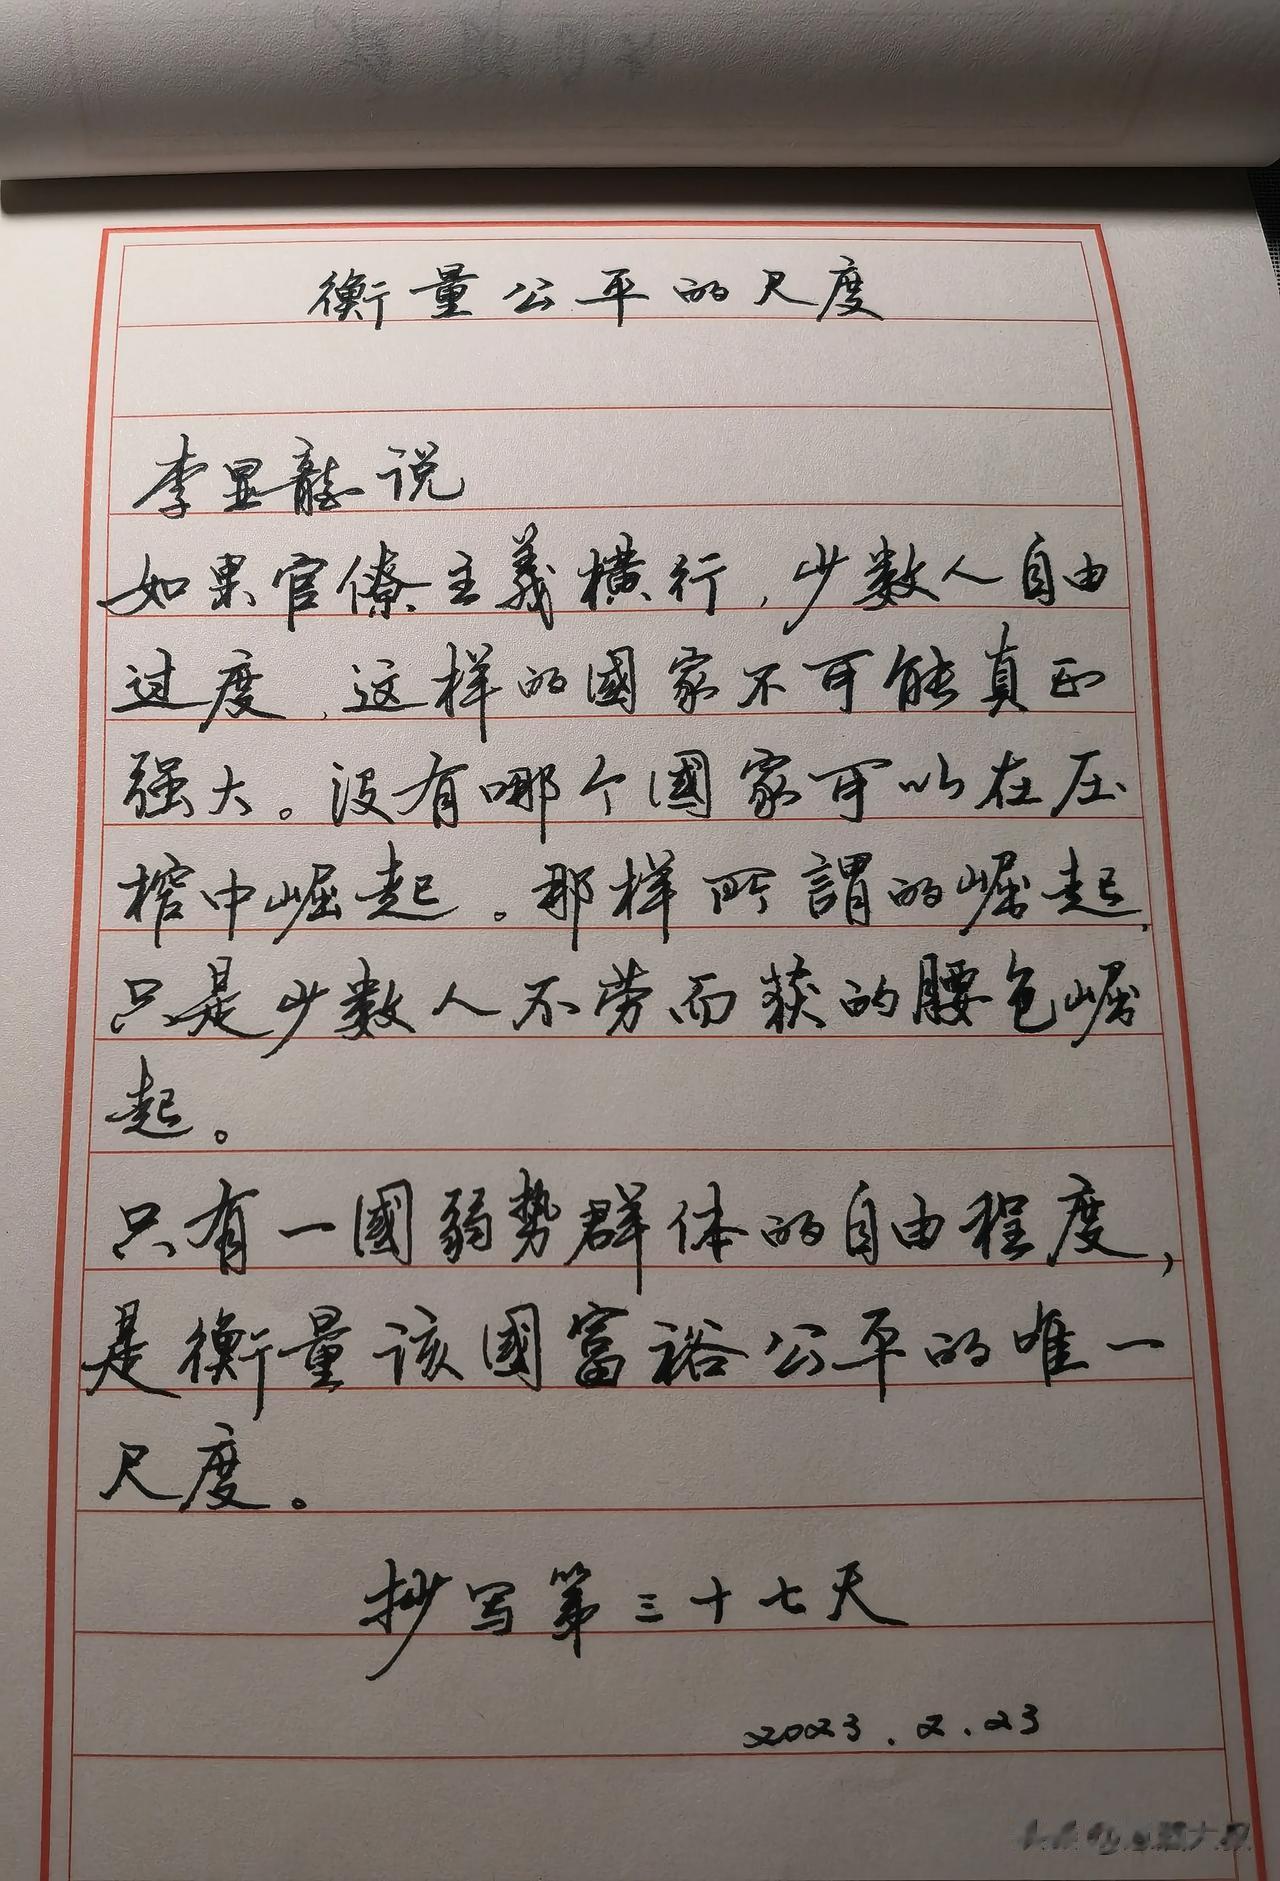 衡量公平的尺度
李显龍说
如果官僚主義横行，少数人自由
过度，这样的國家不可能真正
强大。没有哪个國家可以在压
榨中崛起。那样所謂的崛起，
只是少数人不劳而获的腰包崛
起。
只有一國弱势群体的自由程度，
是衡量该國富裕公平的唯一
尺度。
抄写第三十七天
2023.2.23